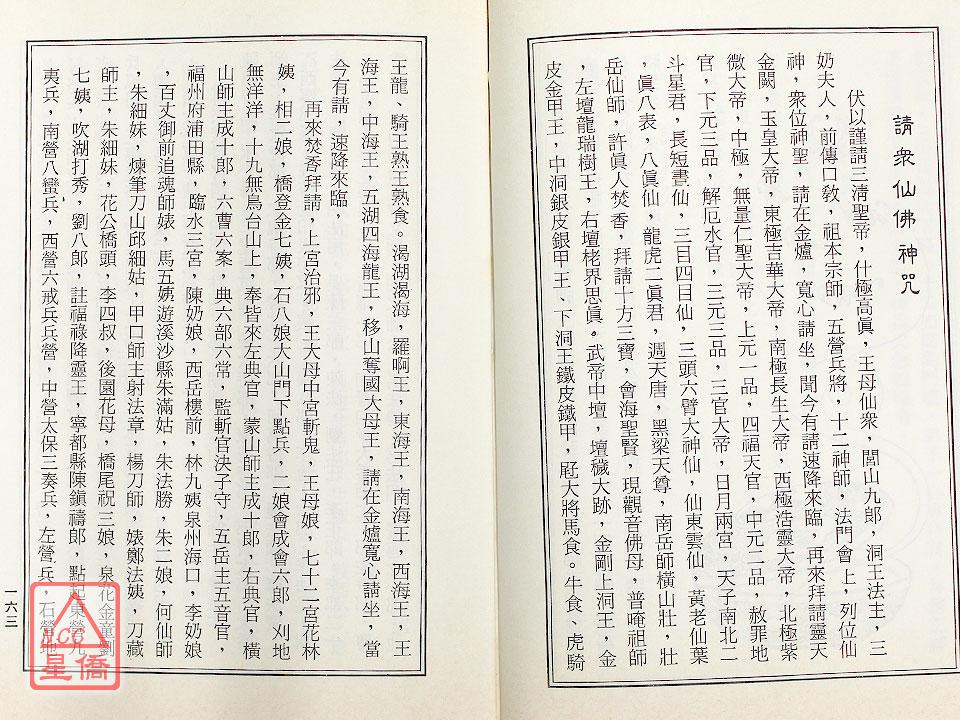 請眾仙佛神咒
伏以謹請三清聖帝，什極高真，王母仙眾，閭山九郎，洞王法主，三
奶夫人，前傳口敎，祖本宗師，五營兵將，十二神師，法門會上，列位仙
神，眾位神聖，請在金爐，寬心請坐，聞今有請速降來臨，再來拜請靈天
金闕，玉皇大帝，東極吉華大帝，南極長生大帝，西極浩靈大帝，北極紫
微大帝，中極，無量仁聖大帝，上元一品，四福天官，中元二品，赦罪地
官，下元三品，解厄水官，三元三品，三官大帝，日月兩宮，天子南北二
斗星君，長短書仙，三目四目仙，三頭六臂大神仙，仙東雲仙，黃老仙葉
，眞八表，八眞仙，龍虎二眞君，週天唐，黑梁天尊，南岳師橫山壯，壯
岳仙師，許眞人焚香，拜請十方三寶，會海聖賢，現觀音佛母，普唵祖師
，左壇龍瑞樹王，右壇栳界思眞。武帝中壇，壇穢大跡，金剛上洞王，金
皮金甲王，中洞銀皮銀甲王、下洞王鐵皮鐵甲，屘大將馬食。牛食、虎騎
王龍、騎王熟王熟食。渴湖渴海，羅啊王，東海王，南海王，西海王，王
海王，中海王，五湖四海龍王，移山奪國大母王，請在金爐寬心請坐，當
今有請，速降來臨，
再來焚香拜請，上宮治邪，王大母中宮斬鬼，王母娘，七十二宮花林
姨，相二娘，橋登金七姨，石八娘大山門下點兵，二娘會成會六郎，刈地
無洋洋，十九無鳥台山上，奉皆來左典官，蒙山師主成十郎，右典官，橫
山師主成十郎，六曹六案，典六部六常，監斬官決子守，五岳主五音官，
福州府浦田縣，臨水三宮，陳奶娘，西岳樓前，林九姨泉州海口，李奶娘
，百丈御前追魂師婊，馬五姨遊溪沙縣朱滿姑，朱法勝，朱二娘，何仙師
，朱細妹，煉筆刀山邱細姑，甲口師主射法章，楊刀師，婊鄭法姨，刀藏
師主，朱細妹，花公橋頭，李四叔，後園花母，橋尾祝三娘，泉花金童劉
七姨，吹湖打秀，劉八郎，註福祿降靈王，寧都縣陳鎭禱郎，點起東營九
夷兵，南營八蠻兵，西營六戒兵兵營，中營太保三奏兵，左營兵，石營地
一六三
NCC
星僑